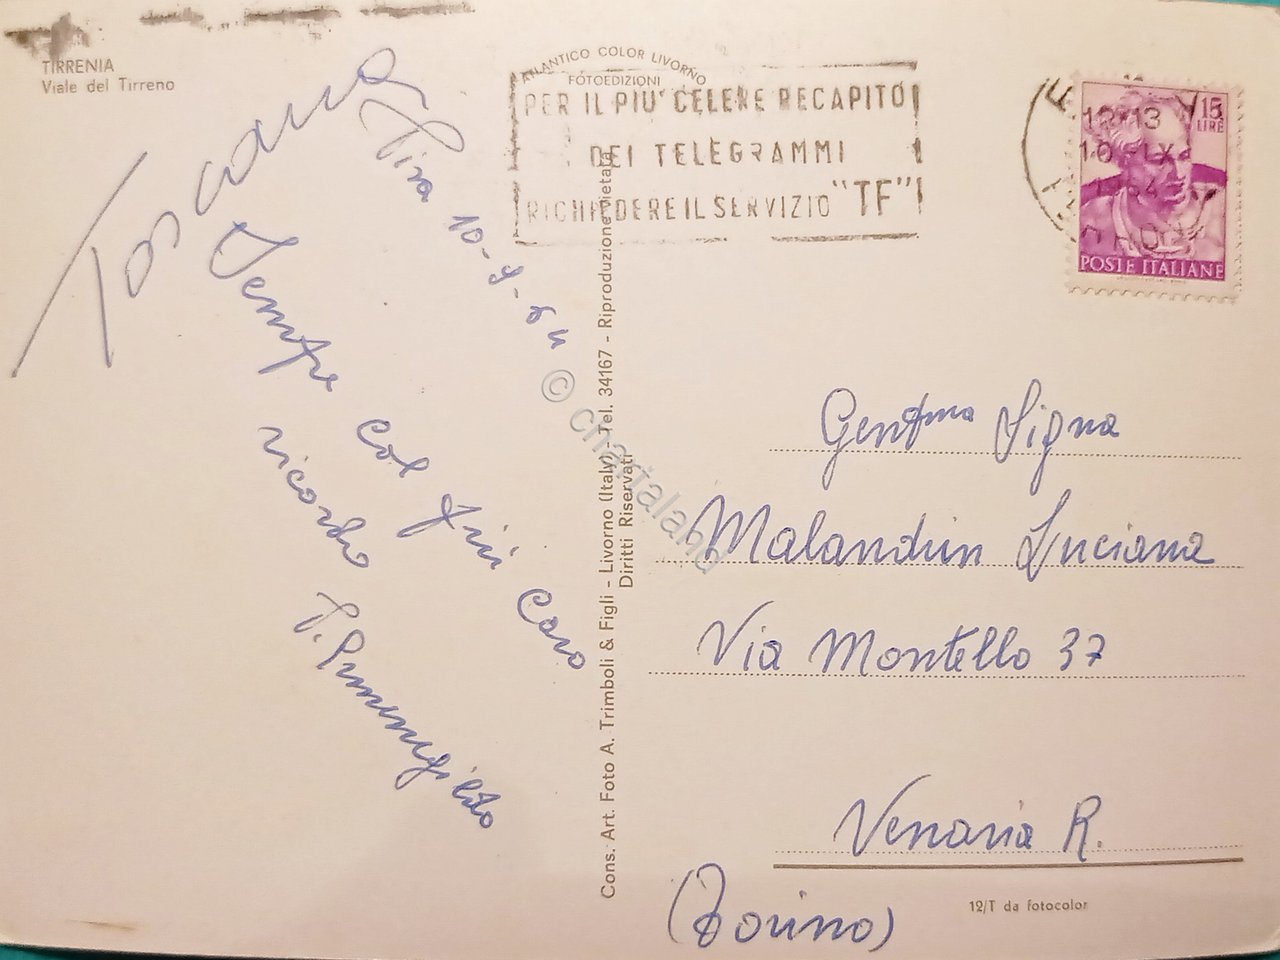 TIRRENIA
Viale del Tirreno
Toscana
Pisa 10-9-64
Sempre col più caro
ricordo
ATLANTICO COLOR LIVORNO
FOTOEDIZIONI
PER IL PIU' CELERE RECAPITO
DEI TELEGRAMMI
RICHIEDERE IL SERVIZIO "TF"
12-13
10-IX
1964
15
LIRE
POSTE ITALIANE
Cons. Art. Foto A. Trimboli & Figli - Livorno (Italy) - Tel. 34167 - Riproduzione vietata
Diritti Riservati
© chartaland
Gentma Signa
Malandrin Luciana
Via Montello 37
Venaria R.
(Torino)
12/T da fotocolor